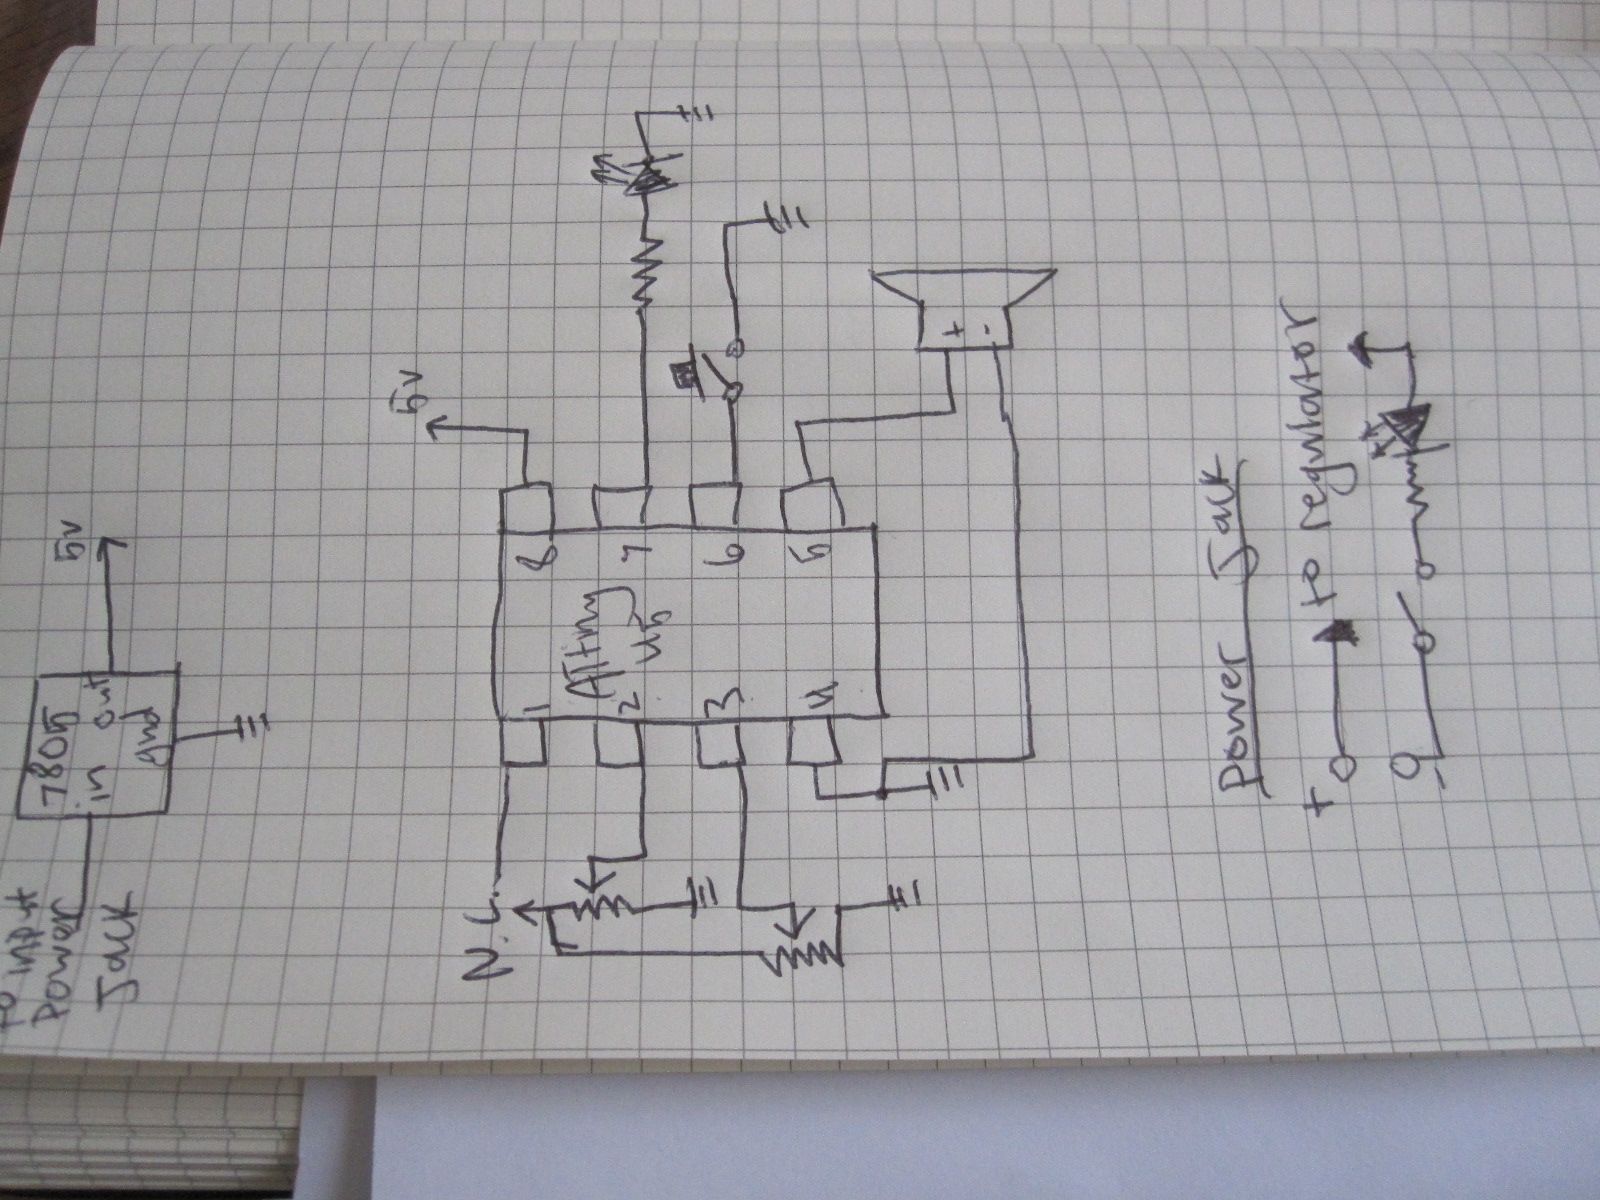 to input
Power
Jack
7805
in
out
gnd
5v
5v
8
7
6
5
ATtiny
45
1
2
3
4
N.C.
+
-
Power Jack
+
to regulator
-